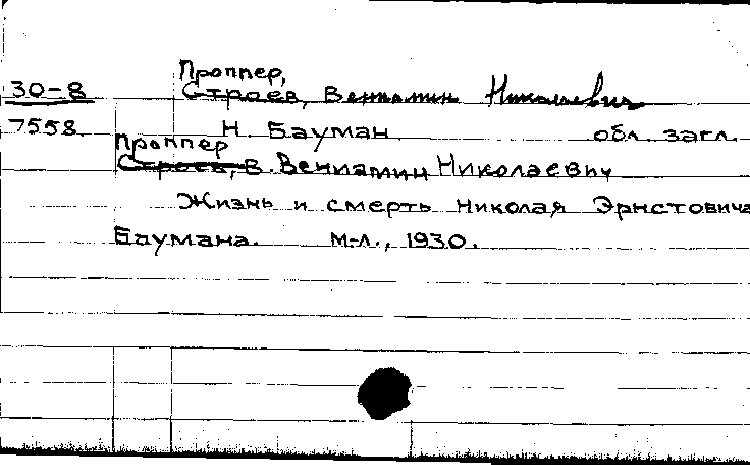 Проппер,
30-8 Строев, Вениамин Николаевич
7558 Н. Бауман обл. загл.
Проппер
Строев, В. Вениамин Николаевич
Жизнь и смерть Николая Эрнстовича
Баумана. М-Л., 1930.